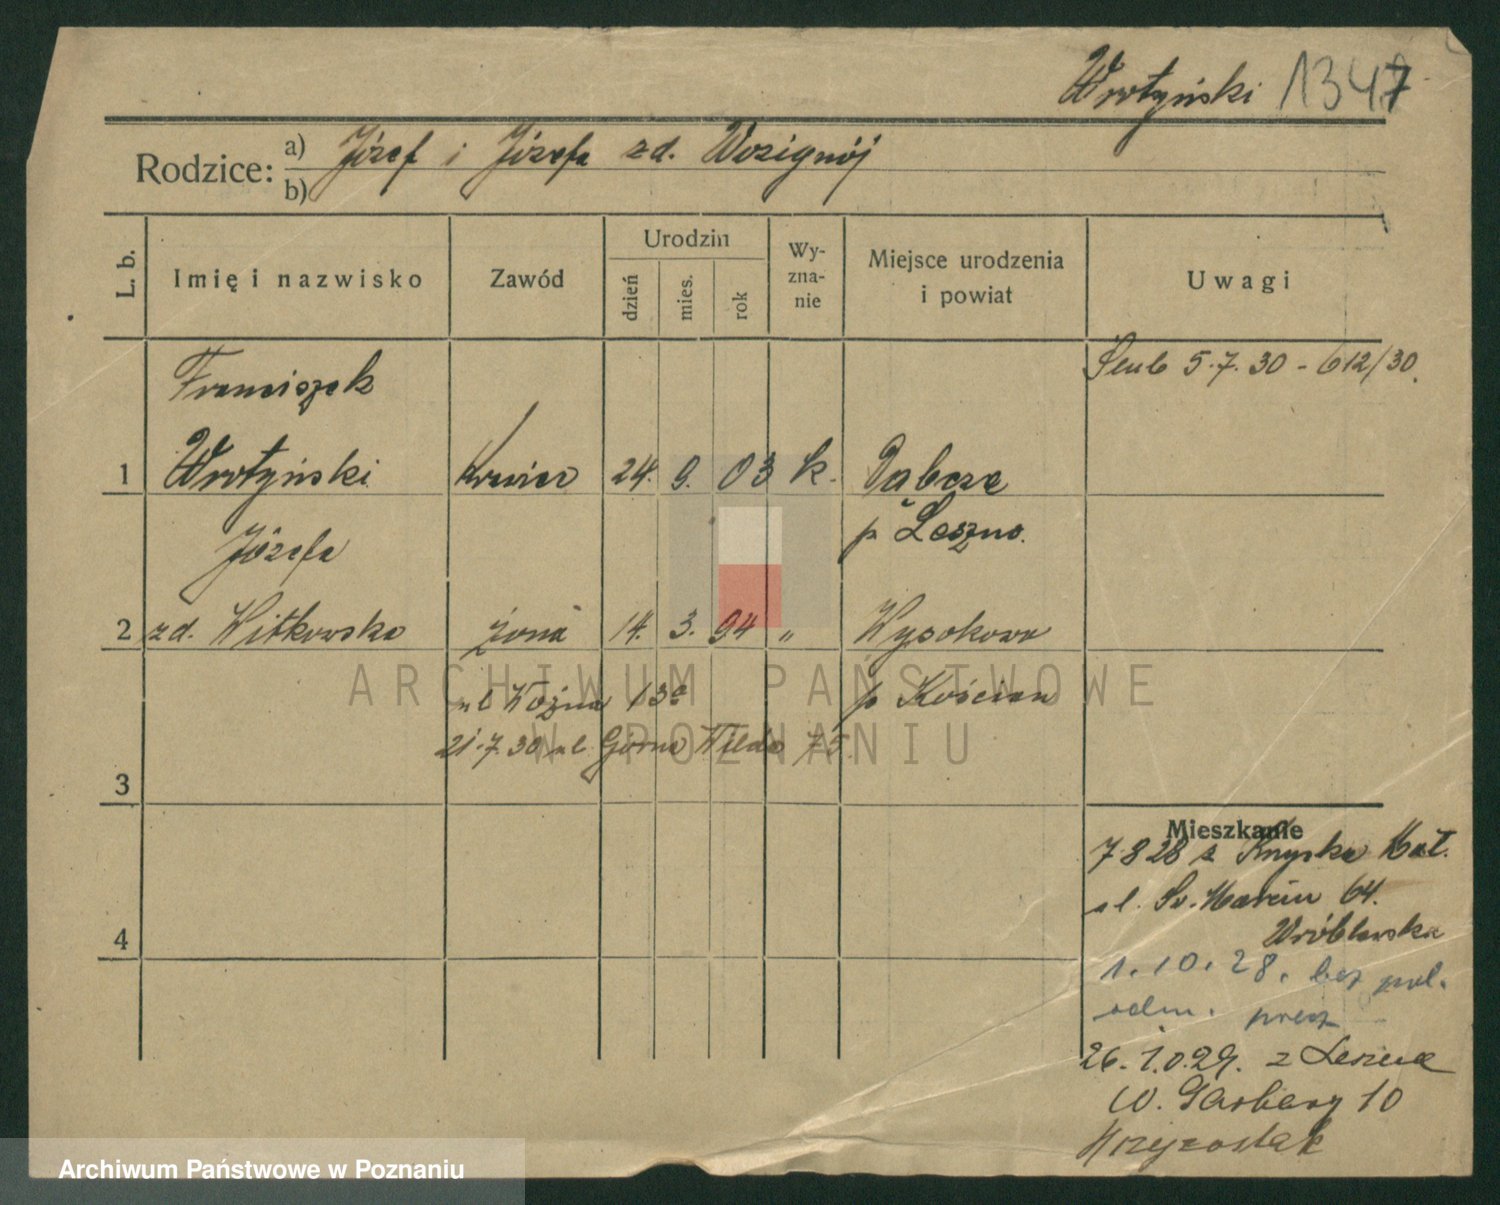 Wrotyński 1347
Rodzice: a) Józef i Józefa zd. Wozignój
b)
L. b.
Imię i nazwisko
Zawód
Urodzin
dzień
mies.
rok
Wy-
zna-
nie
Miejsce urodzenia
i powiat
Uwagi
Franciszek
Ślub 5.7.30 - 612/30.
1 Wrotyński Krawiec 24. 9. 03 k. Dąbcze
p. Leszno.
Józefa
2 zd. Witkowska żona 14. 3. 94 " Wyskowa
p Kościan
ul Woźna 13a
21.7.30 ul. Górna Wilda 75
3
Mieszkanie
7 8 28 z Mat.
ul. Św. Marcin 64.
4
Wróblewska
1.10.28. bez pol.
odm. przez
26.10.29. z Leszna
W. Garbary 10
Krzyżostak
ARCHIWUM PAŃSTWOWE
W POZNANIU
Archiwum Państwowe w Poznaniu